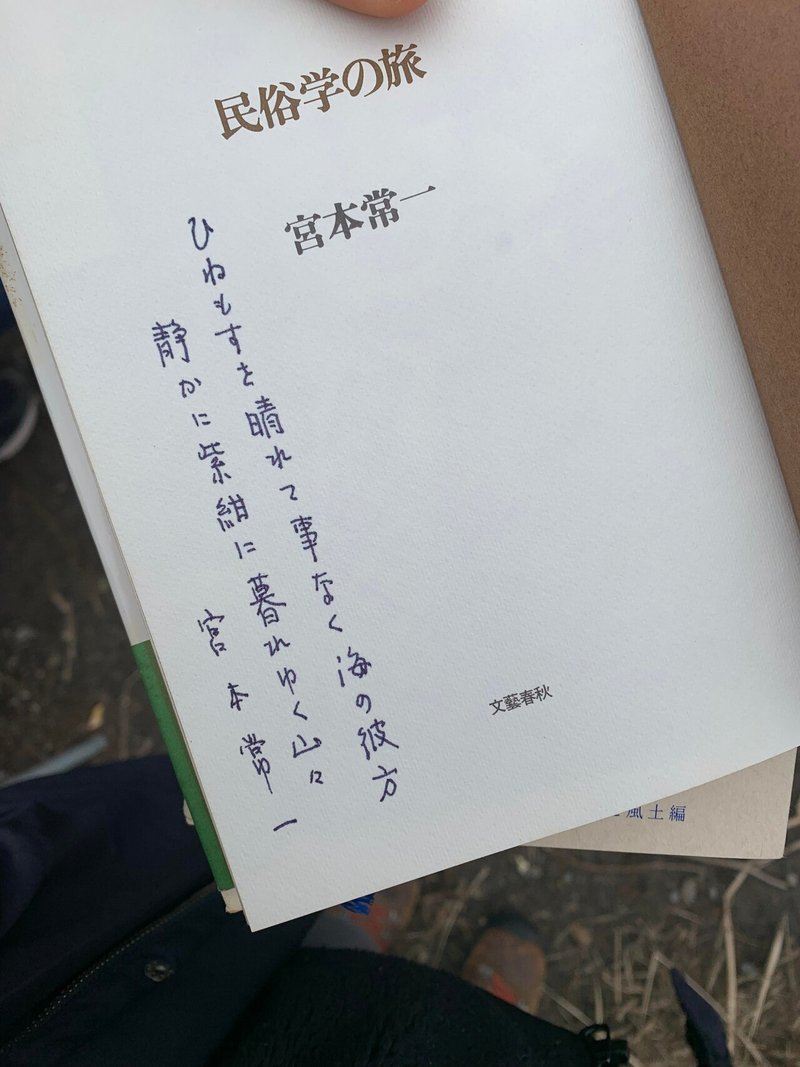 民俗学の旅
宮本常一
ひねもすを晴れて事なく海の彼方
静かに紫紺に暮れゆく山々
宮本常一
文藝春秋
風土編